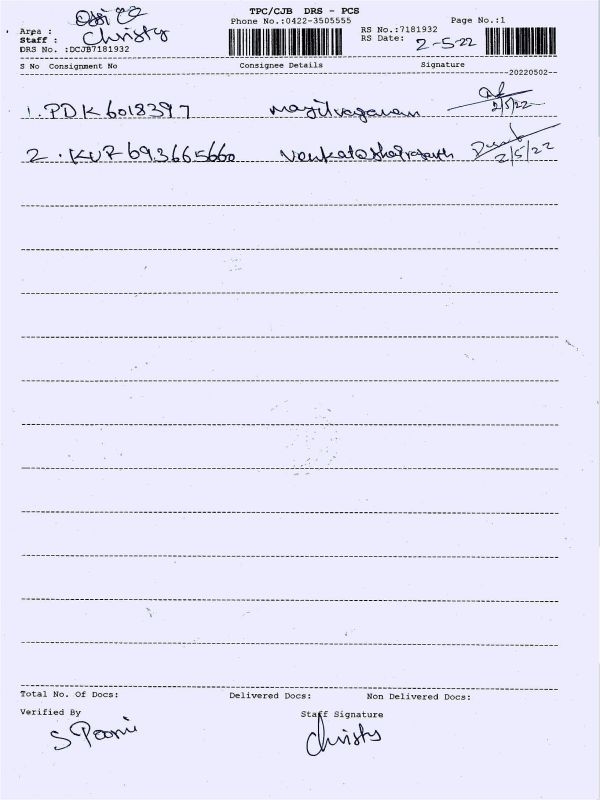 TPC/CJB DRS - PCS
Phone No.:0422-3505555 Page No.:1
Area :
Staff : Christy
RS No.:7181932
DRS No. :DCJB7181932
RS Date: 2-5-22
S No Consignment No Consignee Details Signature
20220502
1. PDK6018397 2/5/22
2. KUR693665660 2/5/22
Total No. Of Docs: Delivered Docs: Non Delivered Docs:
Verified By Staff Signature
Christy